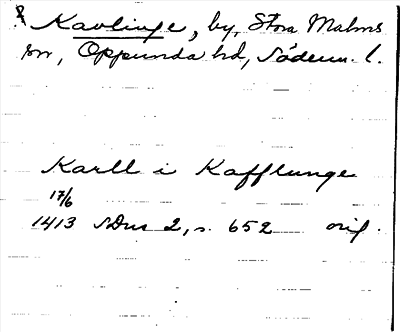 Kavlinge, by, Stora Malms
sn, Oppunda hd, Söderm. l.
Karll i Kafflunge
17/6
1413 SDns 2, s. 652 orig.